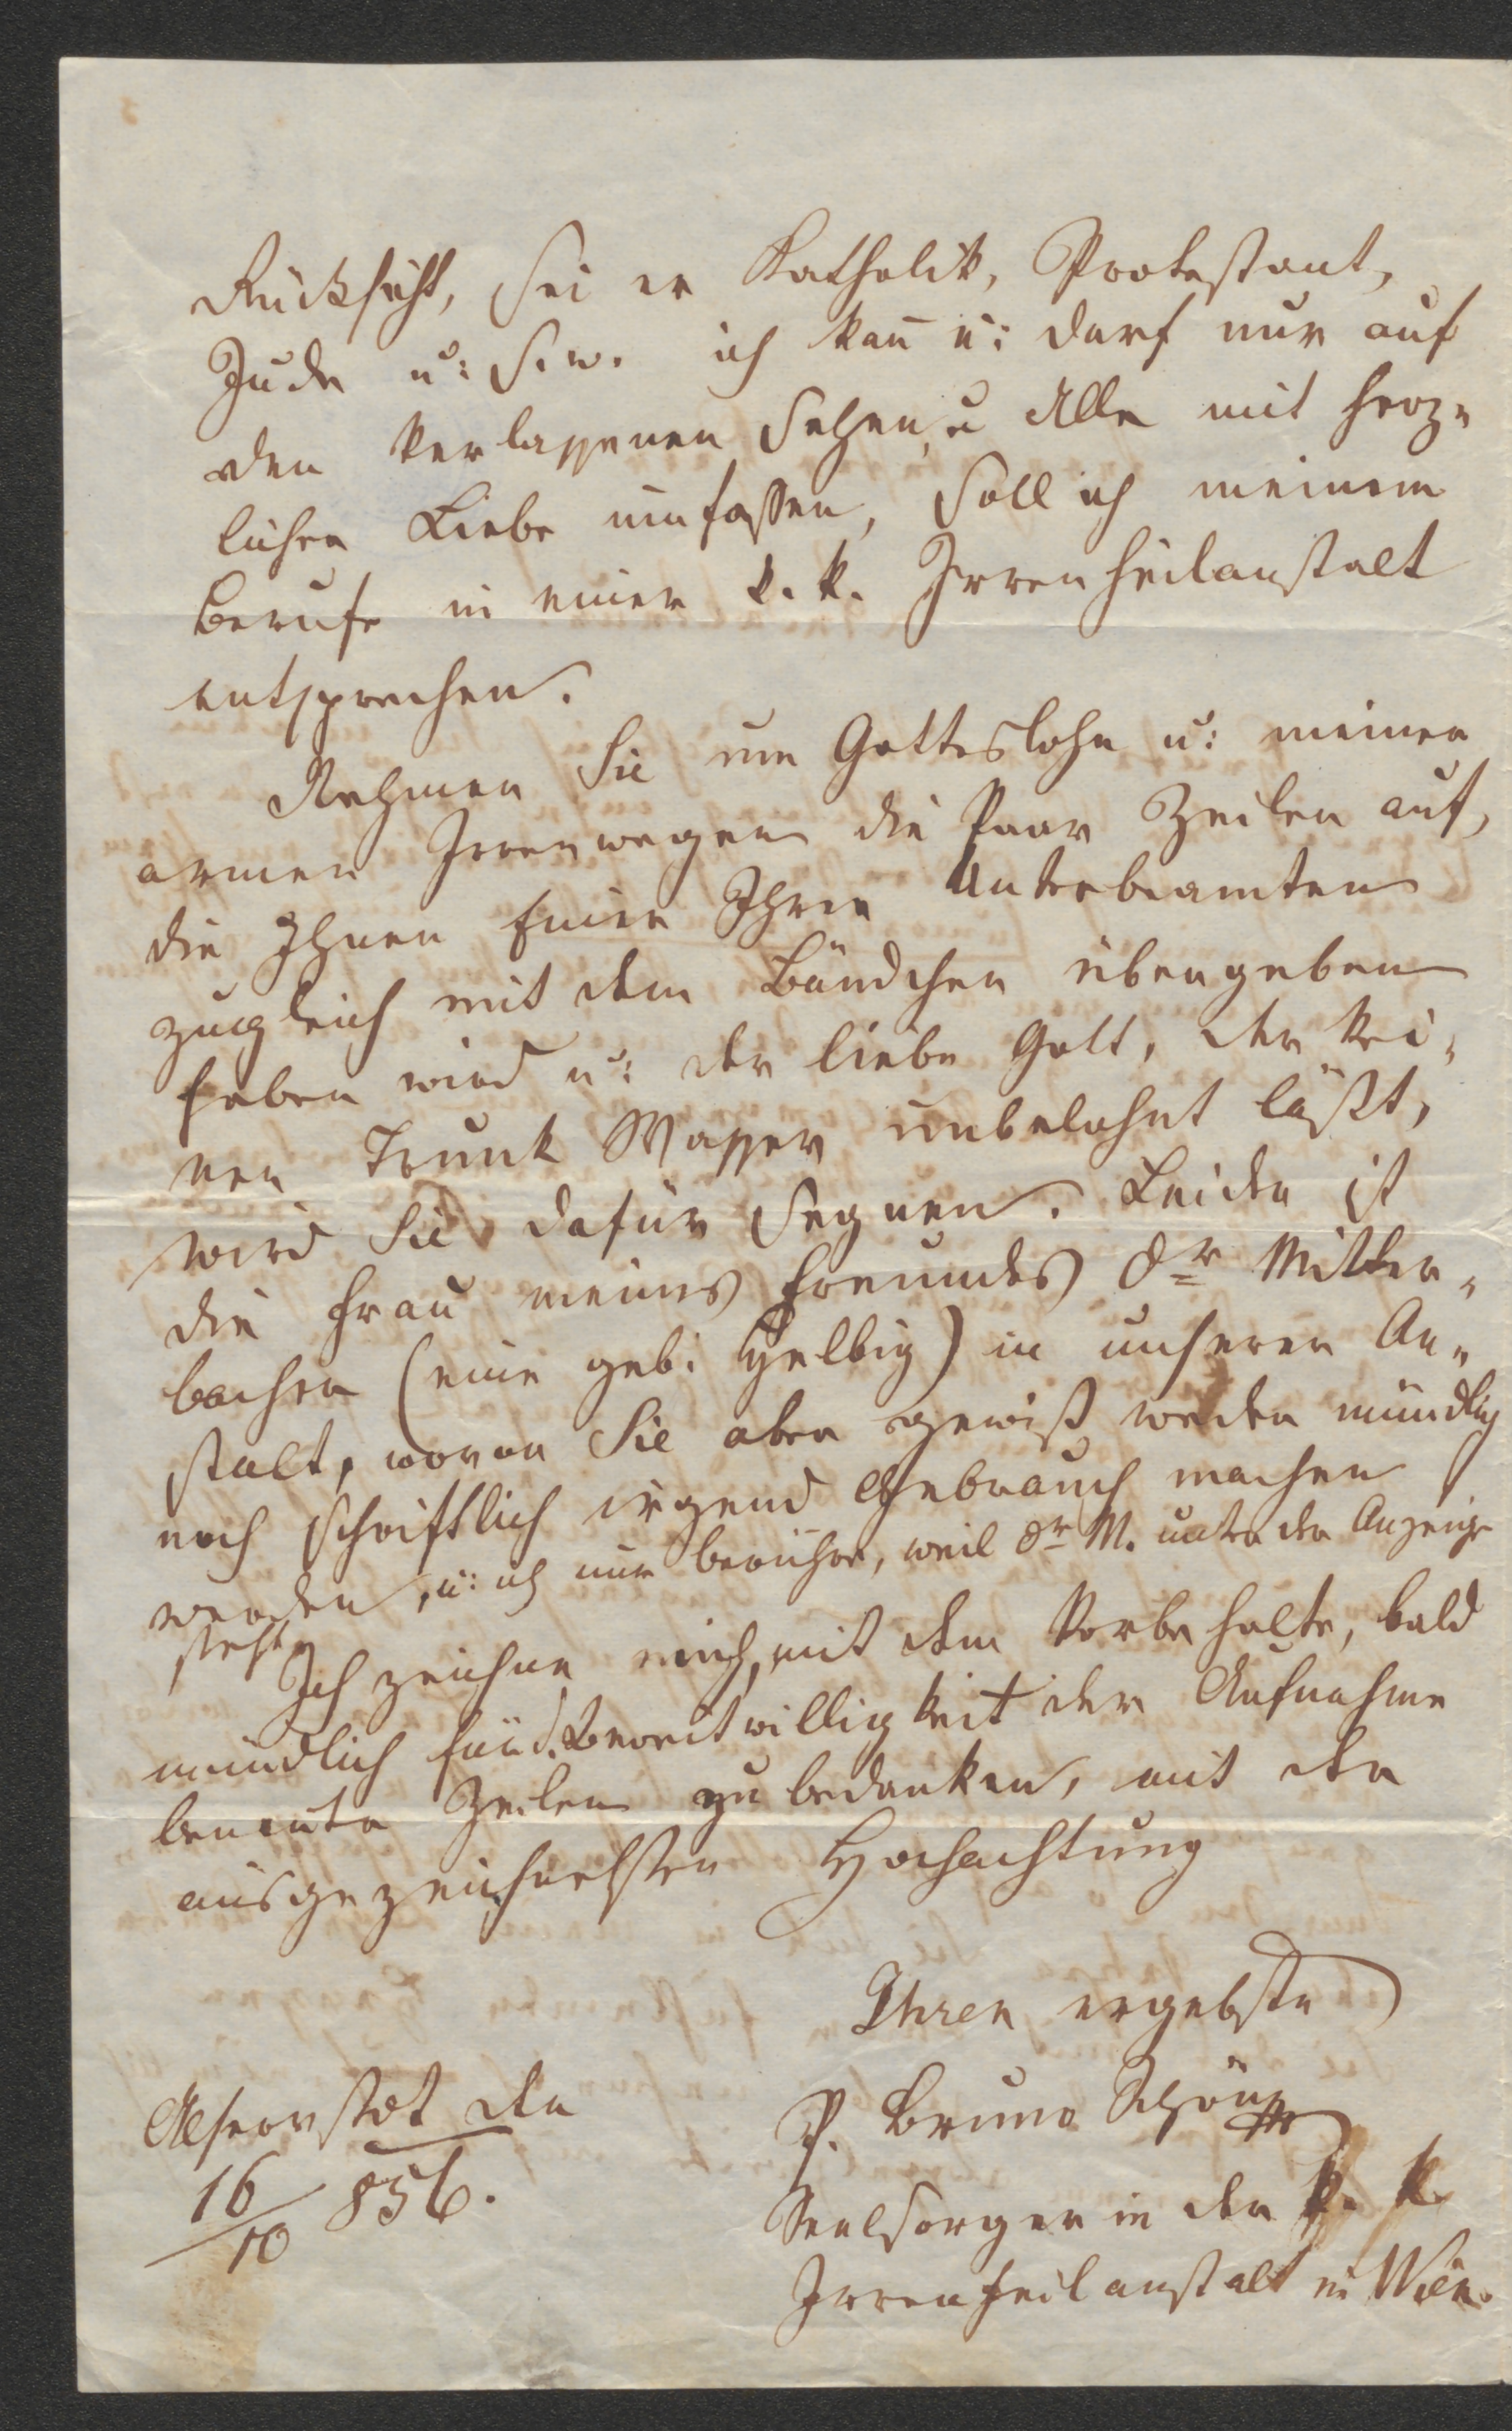 Rücksicht, sei er Katholik, Protestant,
Jude u: s. w. ich kan̅ u: darf nur auf
den Verlassenen sehen, u Alle mit herz-
licher Liebe umfassen, soll ich meinem
Berufe in einer k. k. Irrenheilanstalt
entsprechen.
Nehmen Sie um Gotteslohn u: meiner
armen Irren wegen die Paar Zeilen auf,
die Ihnen Einer Ihrer Unterbeamten
zugleich mit dem Bändchen übergeben
haben wird u: der liebe Gott, der kei-
nen Trunk Wasser unbelohnt läßt,
wird Sie dafür segnen. Leider ist
die Frau meines Freundes Dr Mitter-
bacher (eine geb: Helbig) in unserer An-
stalt, wovon Sie aber gewiß weder mündlich
noch schriftlich irgend Gebrauch machen
werden, u: ich nur berühre, weil Dr M. unter der Anzeige
steht
Ich zeichne mich, mit dem Vorbehalte, bald
mündlich für d. Bereitwilligkeit der Aufnahme
Zeilen zu bedanken, mit der
ausgezeichnetsten Hochachtung
Ihren ergebster
P. Bruno Schön
Alservorstadt den
16/10 856.
Seelsorger in der k. k.
Irrenheilanstalt in Wien.